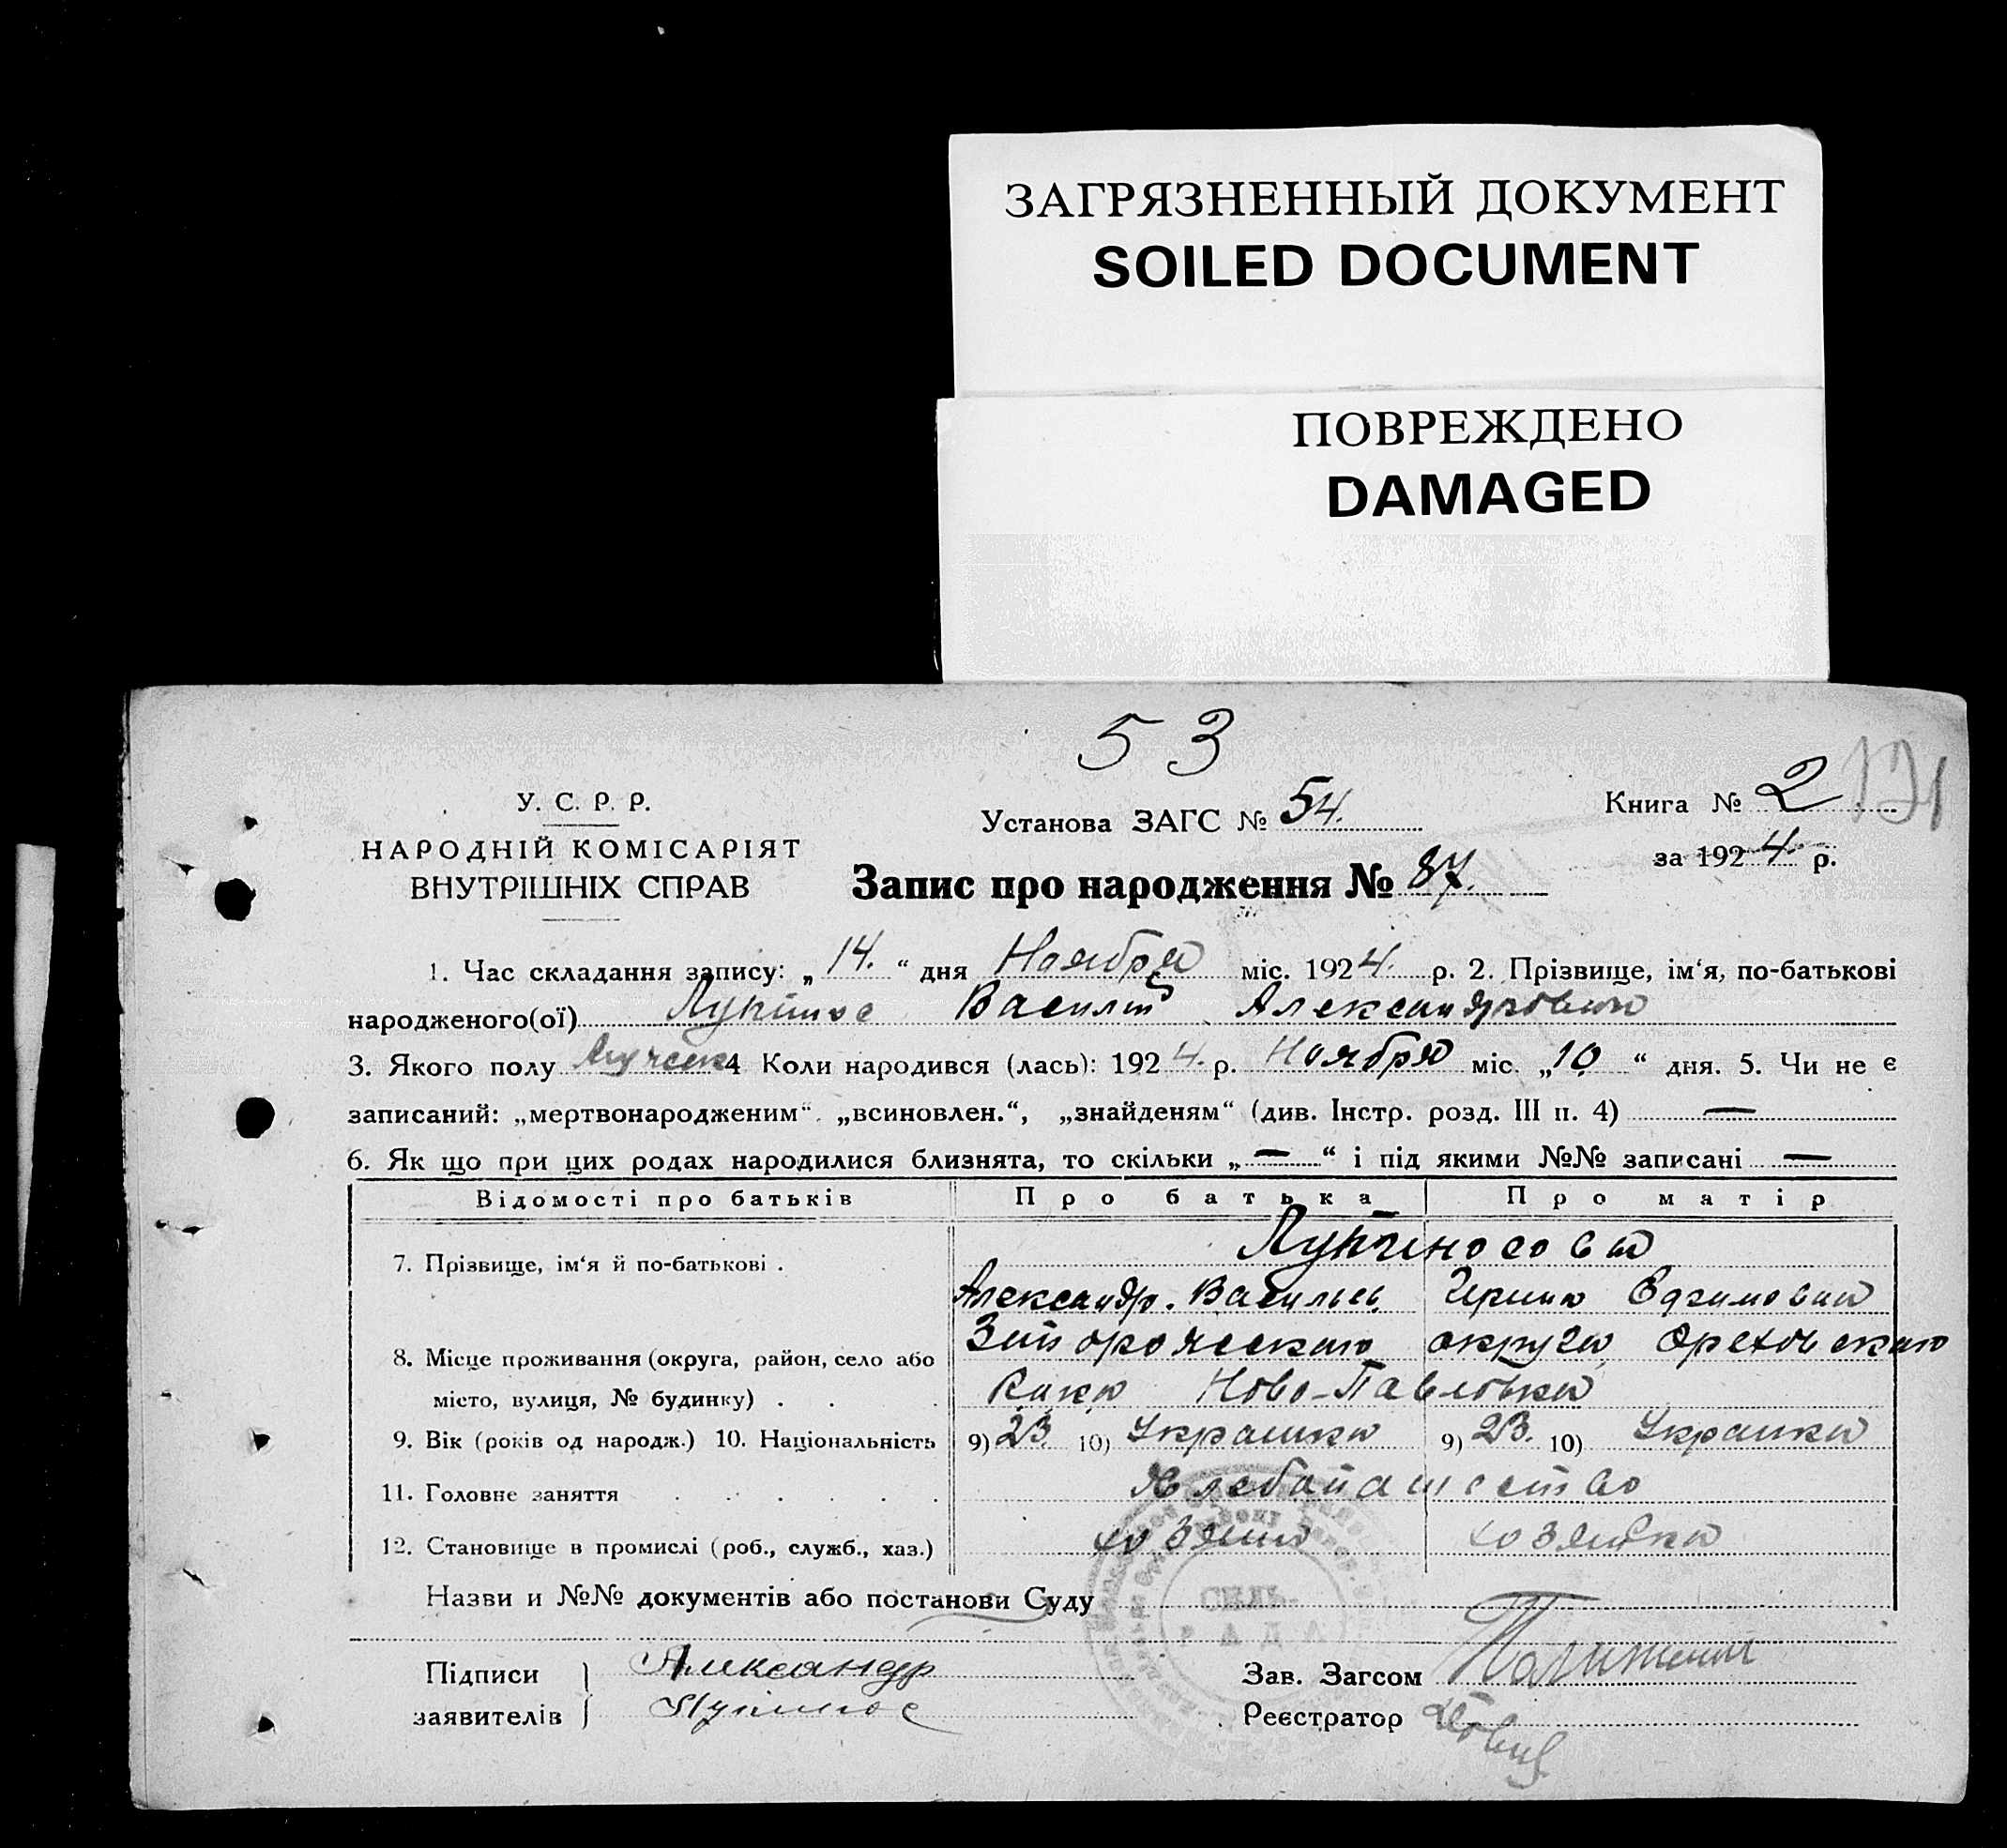 ЗАГРЯЗНЕННЫЙ ДОКУМЕНТ
SOILED DOCUMENT
ПОВРЕЖДЕНО
DAMAGED
53
У. С. Р. Р.
НАРОДНІЙ КОМІСАРІЯТ
ВНУТРІШНІХ СПРАВ
Установа ЗАГС № 54.
Книга № 2
за 1924 р.
Запис про народження № 87.
1. Час складання запису: „14.“ дня Ноября міс. 1924. р. 2. Прізвище, ім‘я, по-батькові
народженого(ої) Василий Александрович
3. Якого полу Мужск 4 Коли народився (лась): 1924. р. Ноября міс. „10“ дня. 5. Чи не є
записаний: „мертвонародженим“. „всиновлен.“, „знайденям“ (див. Інстр. розд. III п. 4) —
6. Як що при цих родах народилися близнята, то скільки „—“ і під якими №№ записані —
Відомості про батьків Про батька Про матір
7. Прізвище, ім‘я й по-батькові .
Александр. Васильев.
8. Місце проживання (округа, район, село або Запорожскаго округа Ореховскаго
місто, вулиця, № будинку) . . . Ново-Павловка
9. Вік (років од народж.) 10. Національність 9) 23. 10) 9) 23. 10)
11. Головне заняття . . . . . . Хлебопашество
12. Становище в промислі (роб., служб., хаз.) хозяин хозяйка
Назви и №№ документів або постанови Суду
СІЛЬ-
РАДА
Підписи Александр
заявителів
Зав. Загсом
Реєстратор